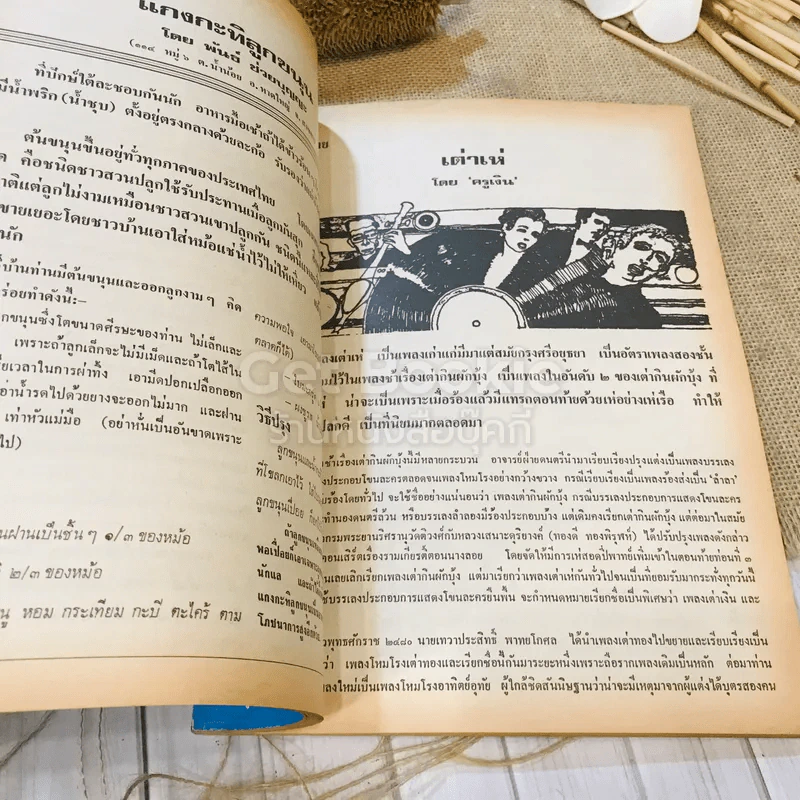 แกงกะทิลูกขนุน
โดย พันธ์
(๑๑๔ หมู่ ๖ ต.น้ำน้อย อ.หาดใหญ่
ที่ปักษ์ใต้ละชอบกันนัก อาหารมื้อเช้าถ้าได้ข้าวร้อน
มีน้ำพริก (น้ำชุบ) ตั้งอยู่ตรงกลางด้วยละก้อ
ต้นขนุนขึ้นอยู่ทั่วทุกภาคของประเทศไทย
คือชนิดชาวสวนปลูกใช้รับประทานเมื่อลูกมันสุก
แต่ลูกไม่งามเหมือนชาวสวนเขาปลูกกัน ชนิดนี้
ขายเยอะโดยชาวบ้านเอาใส่หม้อแช่น้ำไว้ไม่ให้เหี่ยว
นัก
บ้านท่านมีต้นขนุนและออกลูกงาม ๆ คิด
ร่อยทำดังนี้:–
ขนุนซึ่งโตขนาดศีรษะของท่าน ไม่เล็กและ
เพราะถ้าลูกเล็กจะไม่มีเม็ดและถ้าโตไส้ใน
เวลาในการผ่าทิ้ง เอามีดปอกเปลือกออก
น้ำรดไปด้วยยางจะออกไม่มาก และฝาน
เท่าหัวแม่มือ (อย่าหั่นเป็นอันขาดเพราะ
ไป)
ฝานเป็นชิ้น ๆ ๑/๓ ของหม้อ
๒/๓ ของหม้อ
หอม กระเทียม กะปิ ตะไคร้ ตาม
ความพอใจ
ตลาดก็ได้)
วิธีปรุง
ลูกขนุนและน้ำ
ที่โขลกเอาไว้
ลูกขนุนเปื่อย
ถ้าลูกขนุน
พอเปื่อยก็เอา
นักแล
แกงกะทิลูกขนุน
เต่าเห่
โดย 'ครูเงิน'
เพลงเต่าเห่ เป็นเพลงเก่าแก่มีมาแต่สมัยกรุงศรีอยุธยา เป็นอัตราเพลงสองชั้น
ไว้ในเพลงช้าเรื่องเต่ากินผักบุ้ง เป็นเพลงในอันดับ ๒ ของเต่ากินผักบุ้ง ที่
น่าจะเป็นเพราะเนื้อร้องแล้วมีแทรกตอนท้ายด้วยเห่อย่างเห่เรือ ทำให้
เป็นที่นิยมมากตลอดมา
ช้าเรื่องเต่ากินผักบุ้งนี้มีหลายกระบวน อาจารย์ฝ่ายดนตรีนำมาเรียบเรียงปรุงแต่งเป็นเพลงบรรเลง
ประกอบโขนละครตลอดจนเพลงโหมโรงอย่างกว้างขวาง กรณีเรียบเรียงเป็นเพลงร้องส่งเป็น 'ลำลา'
ร้องโดยทั่วไป จะใช้ชื่ออย่างแน่นอนว่า เพลงเต่ากินผักบุ้ง กรณีบรรเลงประกอบการแสดงโขนละคร
ทำนองดนตรีล้วน หรือบรรเลงลำลองมีร้องประกอบบ้าง แต่เดิมคงเรียกเต่ากินผักบุ้ง แต่ต่อมาในสมัย
กรมพระยานริศรานุวัดติวงศ์กับหลวงเสนาะดุริยางค์ (ทองดี ทองพิรุฬห์) ได้ปรับปรุงเพลงดังกล่าว
คอนเสิร์ตเรื่องรามเกียรติ์ตอนนางลอย โดยจัดให้มีการเห่สอดปี่พาทย์เพิ่มเข้าในตอนท้ายท่อนที่ ๑
เลยเลิกเรียกเพลงเต่ากินผักบุ้ง แต่มาเรียกว่าเพลงเต่าเห่กันทั่วไปจนเป็นที่ยอมรับมากระทั่งทุกวันนี้
บรรเลงประกอบการแสดงโขนละครยืนพื้น จะกำหนดหมายเรียกชื่อเป็นพิเศษว่า เพลงเต่าเงิน และ
พุทธศักราช ๒๔๘๐ นายเทวาประสิทธิ์ พาทยโกศล ได้นำเพลงเต่าทองไปขยายและเรียบเรียงเป็น
ว่า เพลงโหมโรงเต่าทองและเรียกชื่อนี้กันมาระยะหนึ่งเพราะถือรากเพลงเดิมเป็นหลัก ต่อมาท่าน
เพลงใหม่เป็นเพลงโหมโรงอาทิตย์อุทัย ผู้ใกล้ชิดสันนิษฐานว่าน่าจะมีเหตุมาจากผู้แต่งได้บุตรสองคน
Get Bookie
ร้านหนังสือบุ๊คกี้